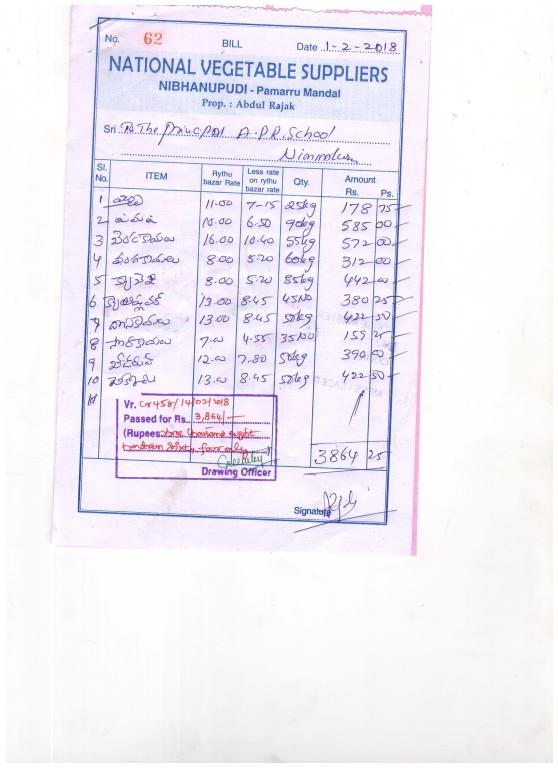 No. 62 BILL Date 1-2-2018
NATIONAL VEGETABLE SUPPLIERS
NIBHANUPUDI - Pamarru Mandal
Prop. : Abdul Rajak
Sri To The Principal A.P.R. School
Sl. No. ITEM Rythu bazar Rate Less rate on rythu bazar rate Qty. Amount Rs. Ps.
1 11.00 7-15 25kg 178 75
2 టమాట 10.00 6.50 90kg 585 00
3 బెండకాయలు 16.00 10.40 55kg 572 00
4 వంకాయలు 8.00 5.20 60kg 312 00
5 క్యాబేజి 8.00 5.20 85kg 442
6 13.00 8.45 45No 380 25
7 దోసకాయలు 13.00 8.45 50kg 422 50
8 సొరకాయలు 7. 4.55 35No 159 25
9 12. 7.80 50kg 390
10 13. 8.45 50kg 422 50
11
Vr. Cr 458/14/02/2018
Passed for Rs. 3,864/-
(Rupees three thousand eight
hundred sixty four only)
Drawing Officer
3864 25
Signature